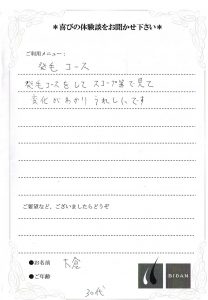 *喜びの体験談をお聞かせ下さい*
ご利用メニュー：
発毛 コース
発毛コースをして スコープ等で見て
変化がわかり うれしいです
ご要望など、ございましたらどうぞ
●お名前 大倉
BIDAN
●ご年齢
30代